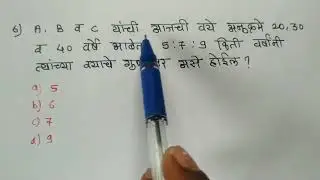 6) A, B व C यांची आजची वये अनुक्रमे 20, 30
व 40 वर्षे आहेत 5:7:9 किती वर्षांनी
त्यांच्या वयाचे असे होईल ?
a) 5
b) 6
c) 7
d) 9